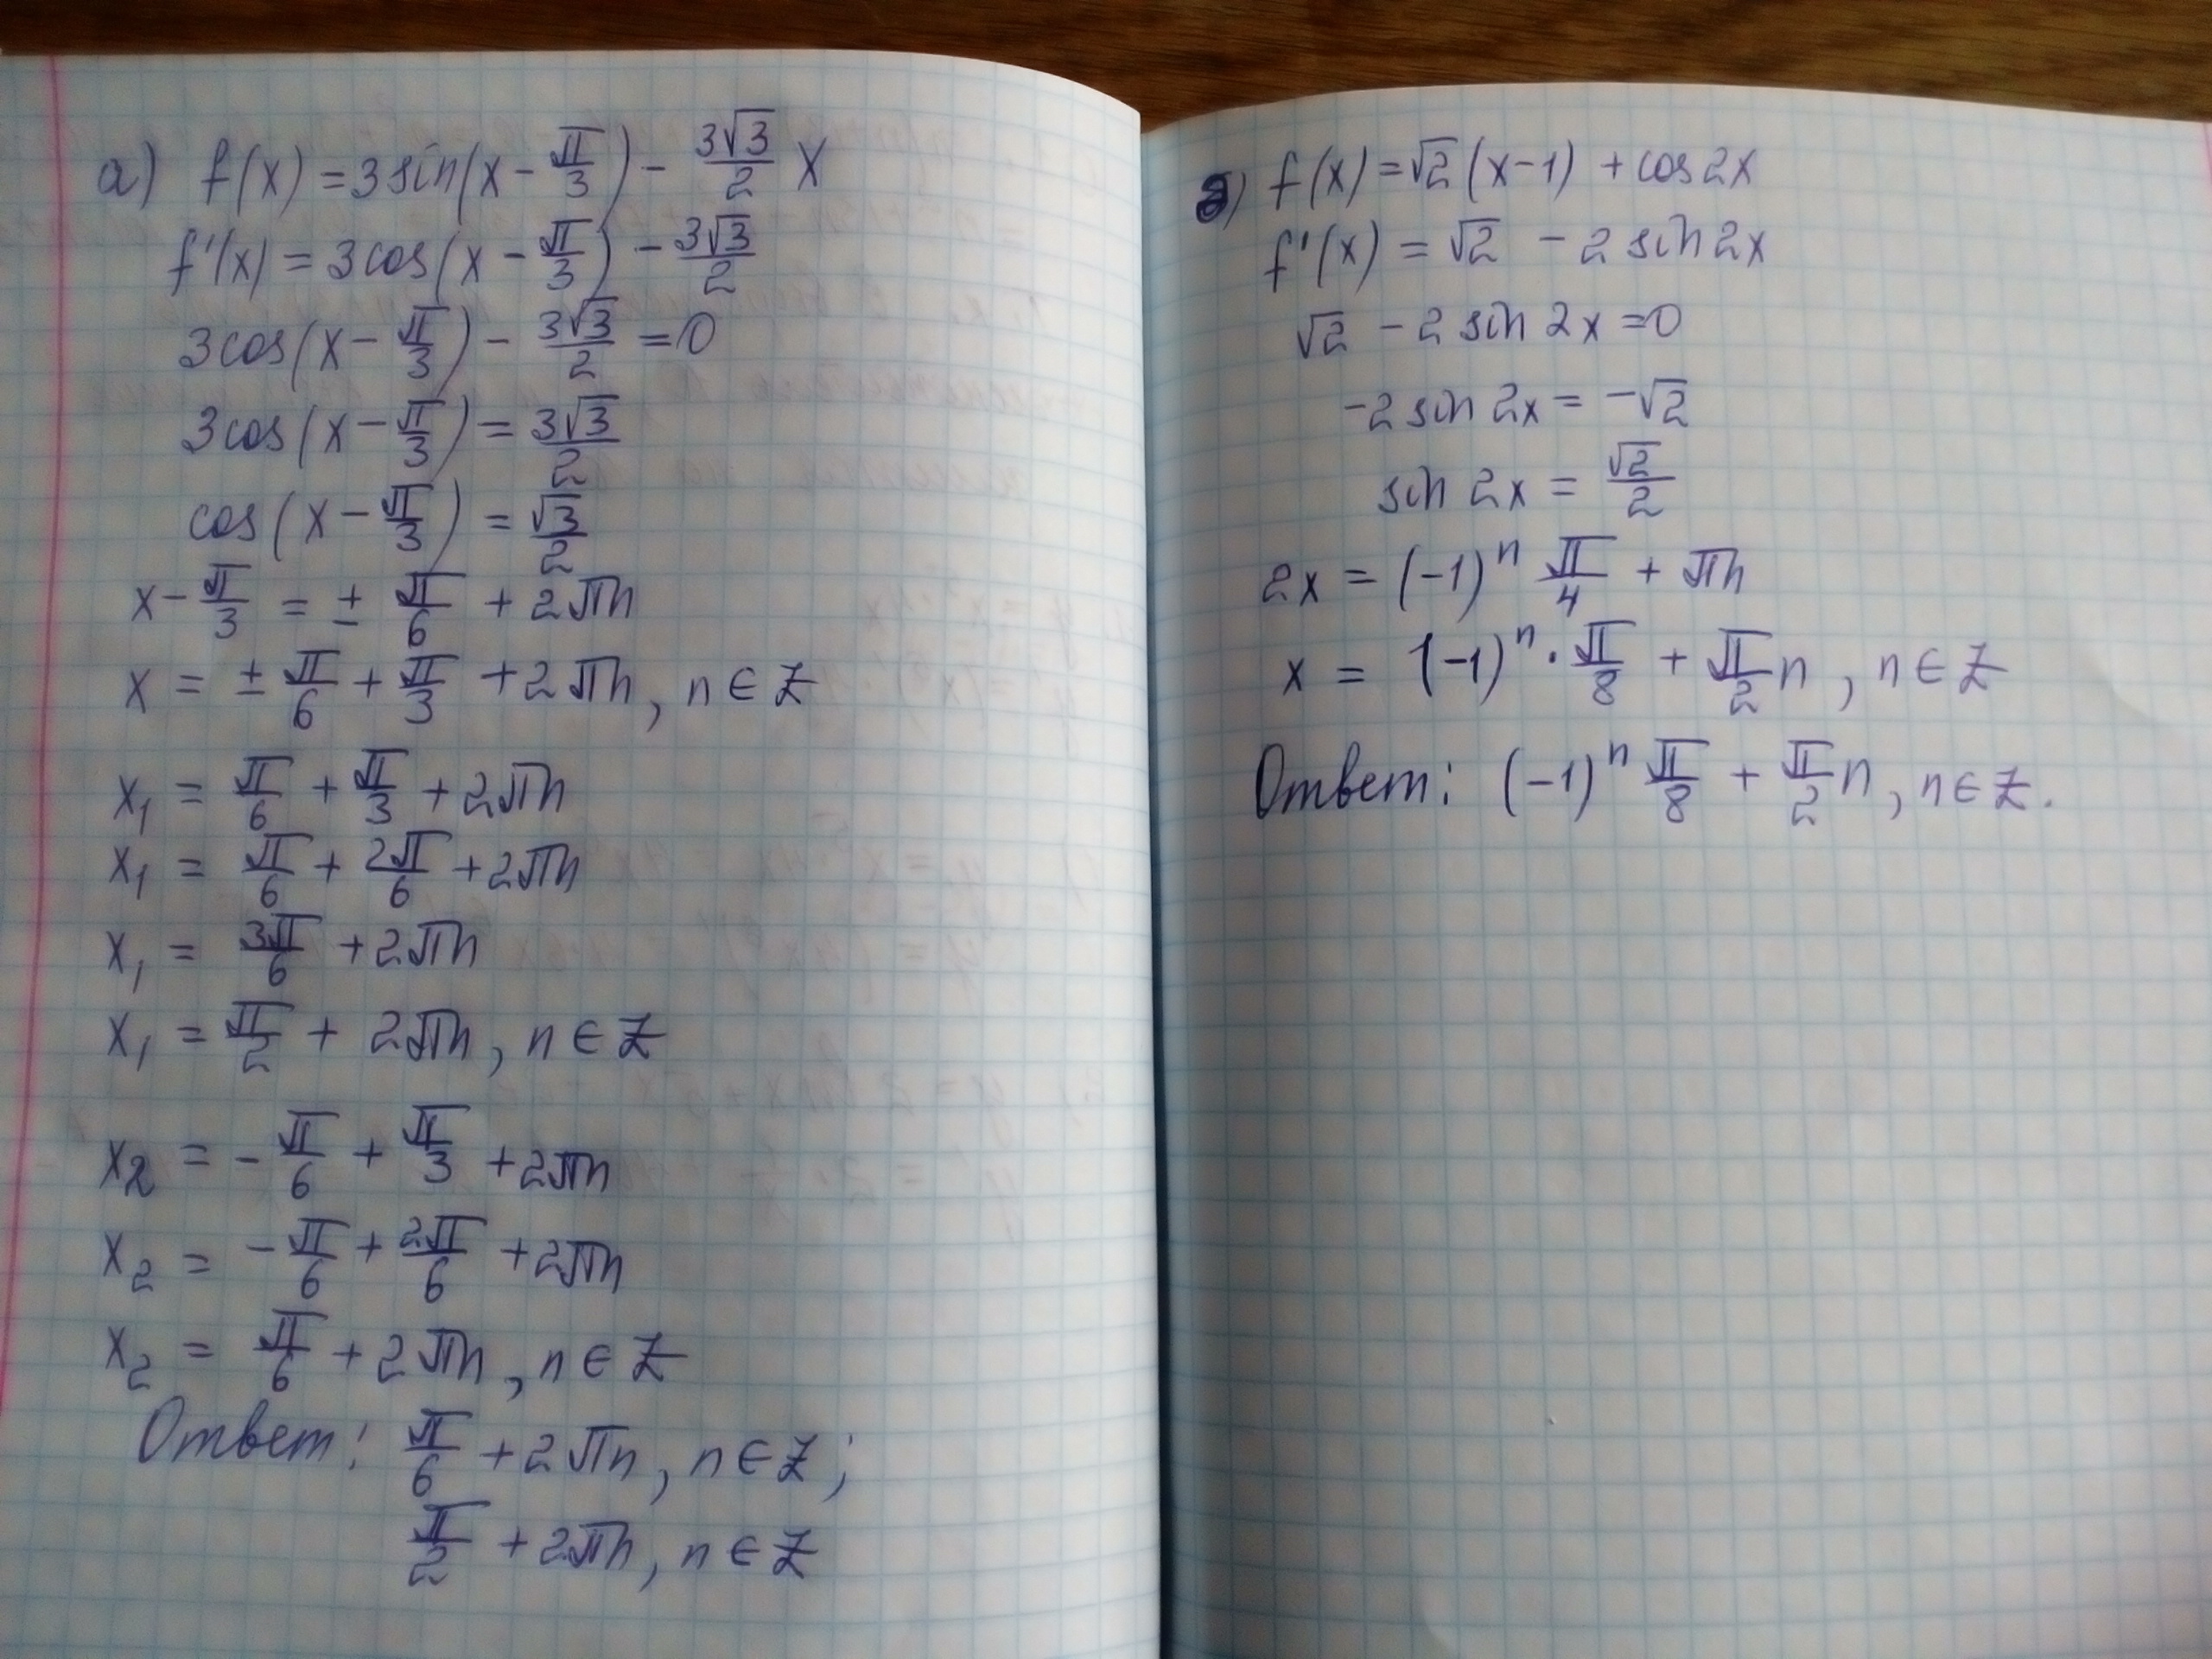 а) f(x) = 3 sin(x - π/3) - 3√3/2 x
f'(x) = 3cos(x - π/3) - 3√3/2
3cos(x - π/3) - 3√3/2 = 0
3cos(x - π/3) = 3√3/2
cos(x - π/3) = √3/2
x - π/3 = ± π/6 + 2πn
x = ± π/6 + π/3 + 2πn, n ∈ Z
x₁ = π/6 + π/3 + 2πn
x₁ = π/6 + 2π/6 + 2πn
x₁ = 3π/6 + 2πn
x₁ = π/2 + 2πn, n ∈ Z
x₂ = - π/6 + π/3 + 2πn
x₂ = - π/6 + 2π/6 + 2πn
x₂ = π/6 + 2πn, n ∈ Z
Ответ: π/6 + 2πn, n ∈ Z;
π/2 + 2πn, n ∈ Z
б) f(x) = √2(x-1) + cos2x
f'(x) = √2 - 2 sin 2x
√2 - 2 sin 2x = 0
-2 sin 2x = -√2
sin 2x = √2/2
2x = (-1)ⁿ π/4 + πn
x = (-1)ⁿ · π/8 + π/2 n, n ∈ Z
Ответ: (-1)ⁿ π/8 + π/2 n, n ∈ Z.